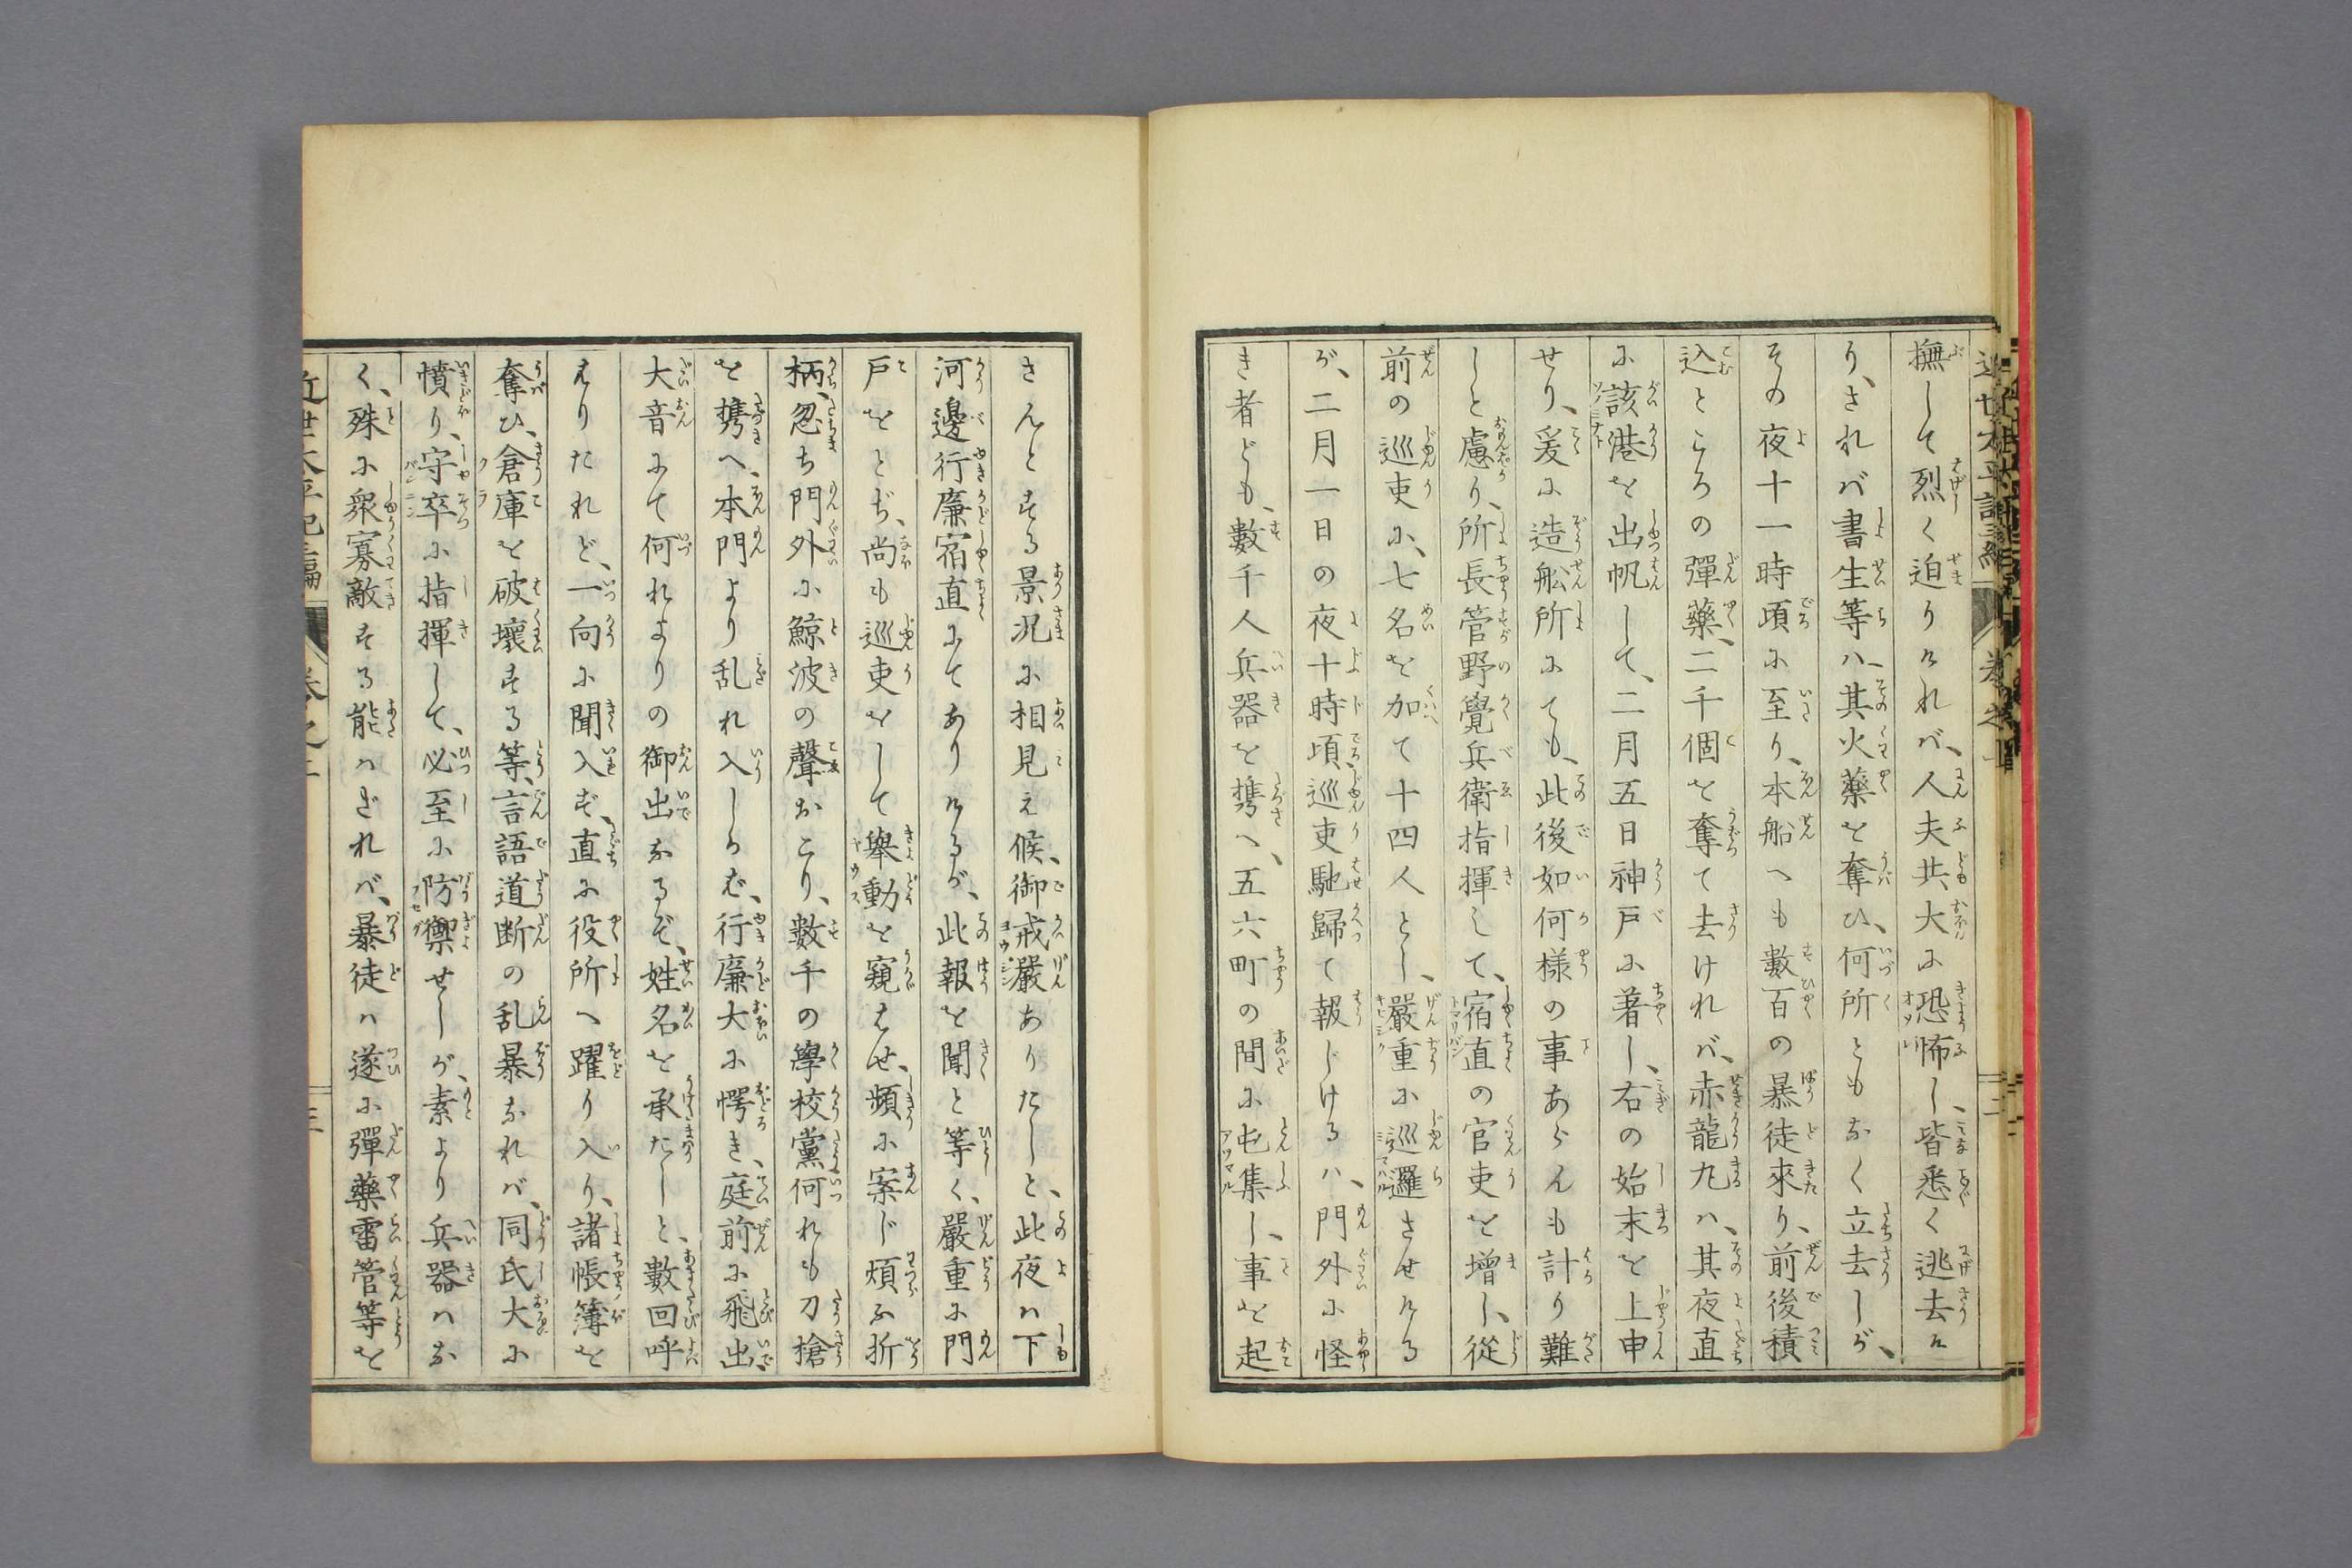 撫して烈く迫りけれバ、人夫共大に恐怖し、皆悉く逃去け
り、されバ書生等ハ、其火藥を奪ひ、何所ともなく立去しが、
その夜十一時頃に至り、本船へも數百の暴徒來り、前後積
込ところの彈藥、二千個を奪て去けれバ、赤龍丸ハ、其夜直
に該港を出帆して、二月五日神戸に著し、右の始末を上申
せり、爰に造舩所にても、此後如何樣の事あらんも計り難
しと慮り、所長管野覺兵衛指揮して、宿直の官吏を增し、從
前の巡吏に、七名を加て十四人とし、嚴重に巡邏させける
が、二月一日の夜十時頃、巡吏馳歸て報じけるハ、門外に怪
き者ども、數千人兵器を携へ、五六町の間に屯集し、事を起
さんとする景况に相見え候、御戒嚴ありたしと、此夜ハ下
河邊行廉宿直にてありけるが、此報を聞と等く、嚴重に門
戸をとぢ、尚も巡吏をして擧動を窺はせ、頻に案じ煩ふ折
柄、忽ち門外に鯨波の聲おこり、數千の學校黨何れも刀槍
を携へ、本門より乱れ入しかば、行廉大に愕き、庭前に飛出、
大音にて何れよりの御出なるぞ、姓名を承たしと、數回呼
はりたれど、一向に聞入ず、直に役所へ躍り入り、諸帳簿を
奪ひ、倉庫を破壞する等、言語道断の乱暴なれバ、同氏大に
憤り、守卒に指揮して、必至に防禦せしが、素より兵器ハな
く、殊に衆寡敵する能ハざれバ、暴徒ハ遂に彈藥雷管等を